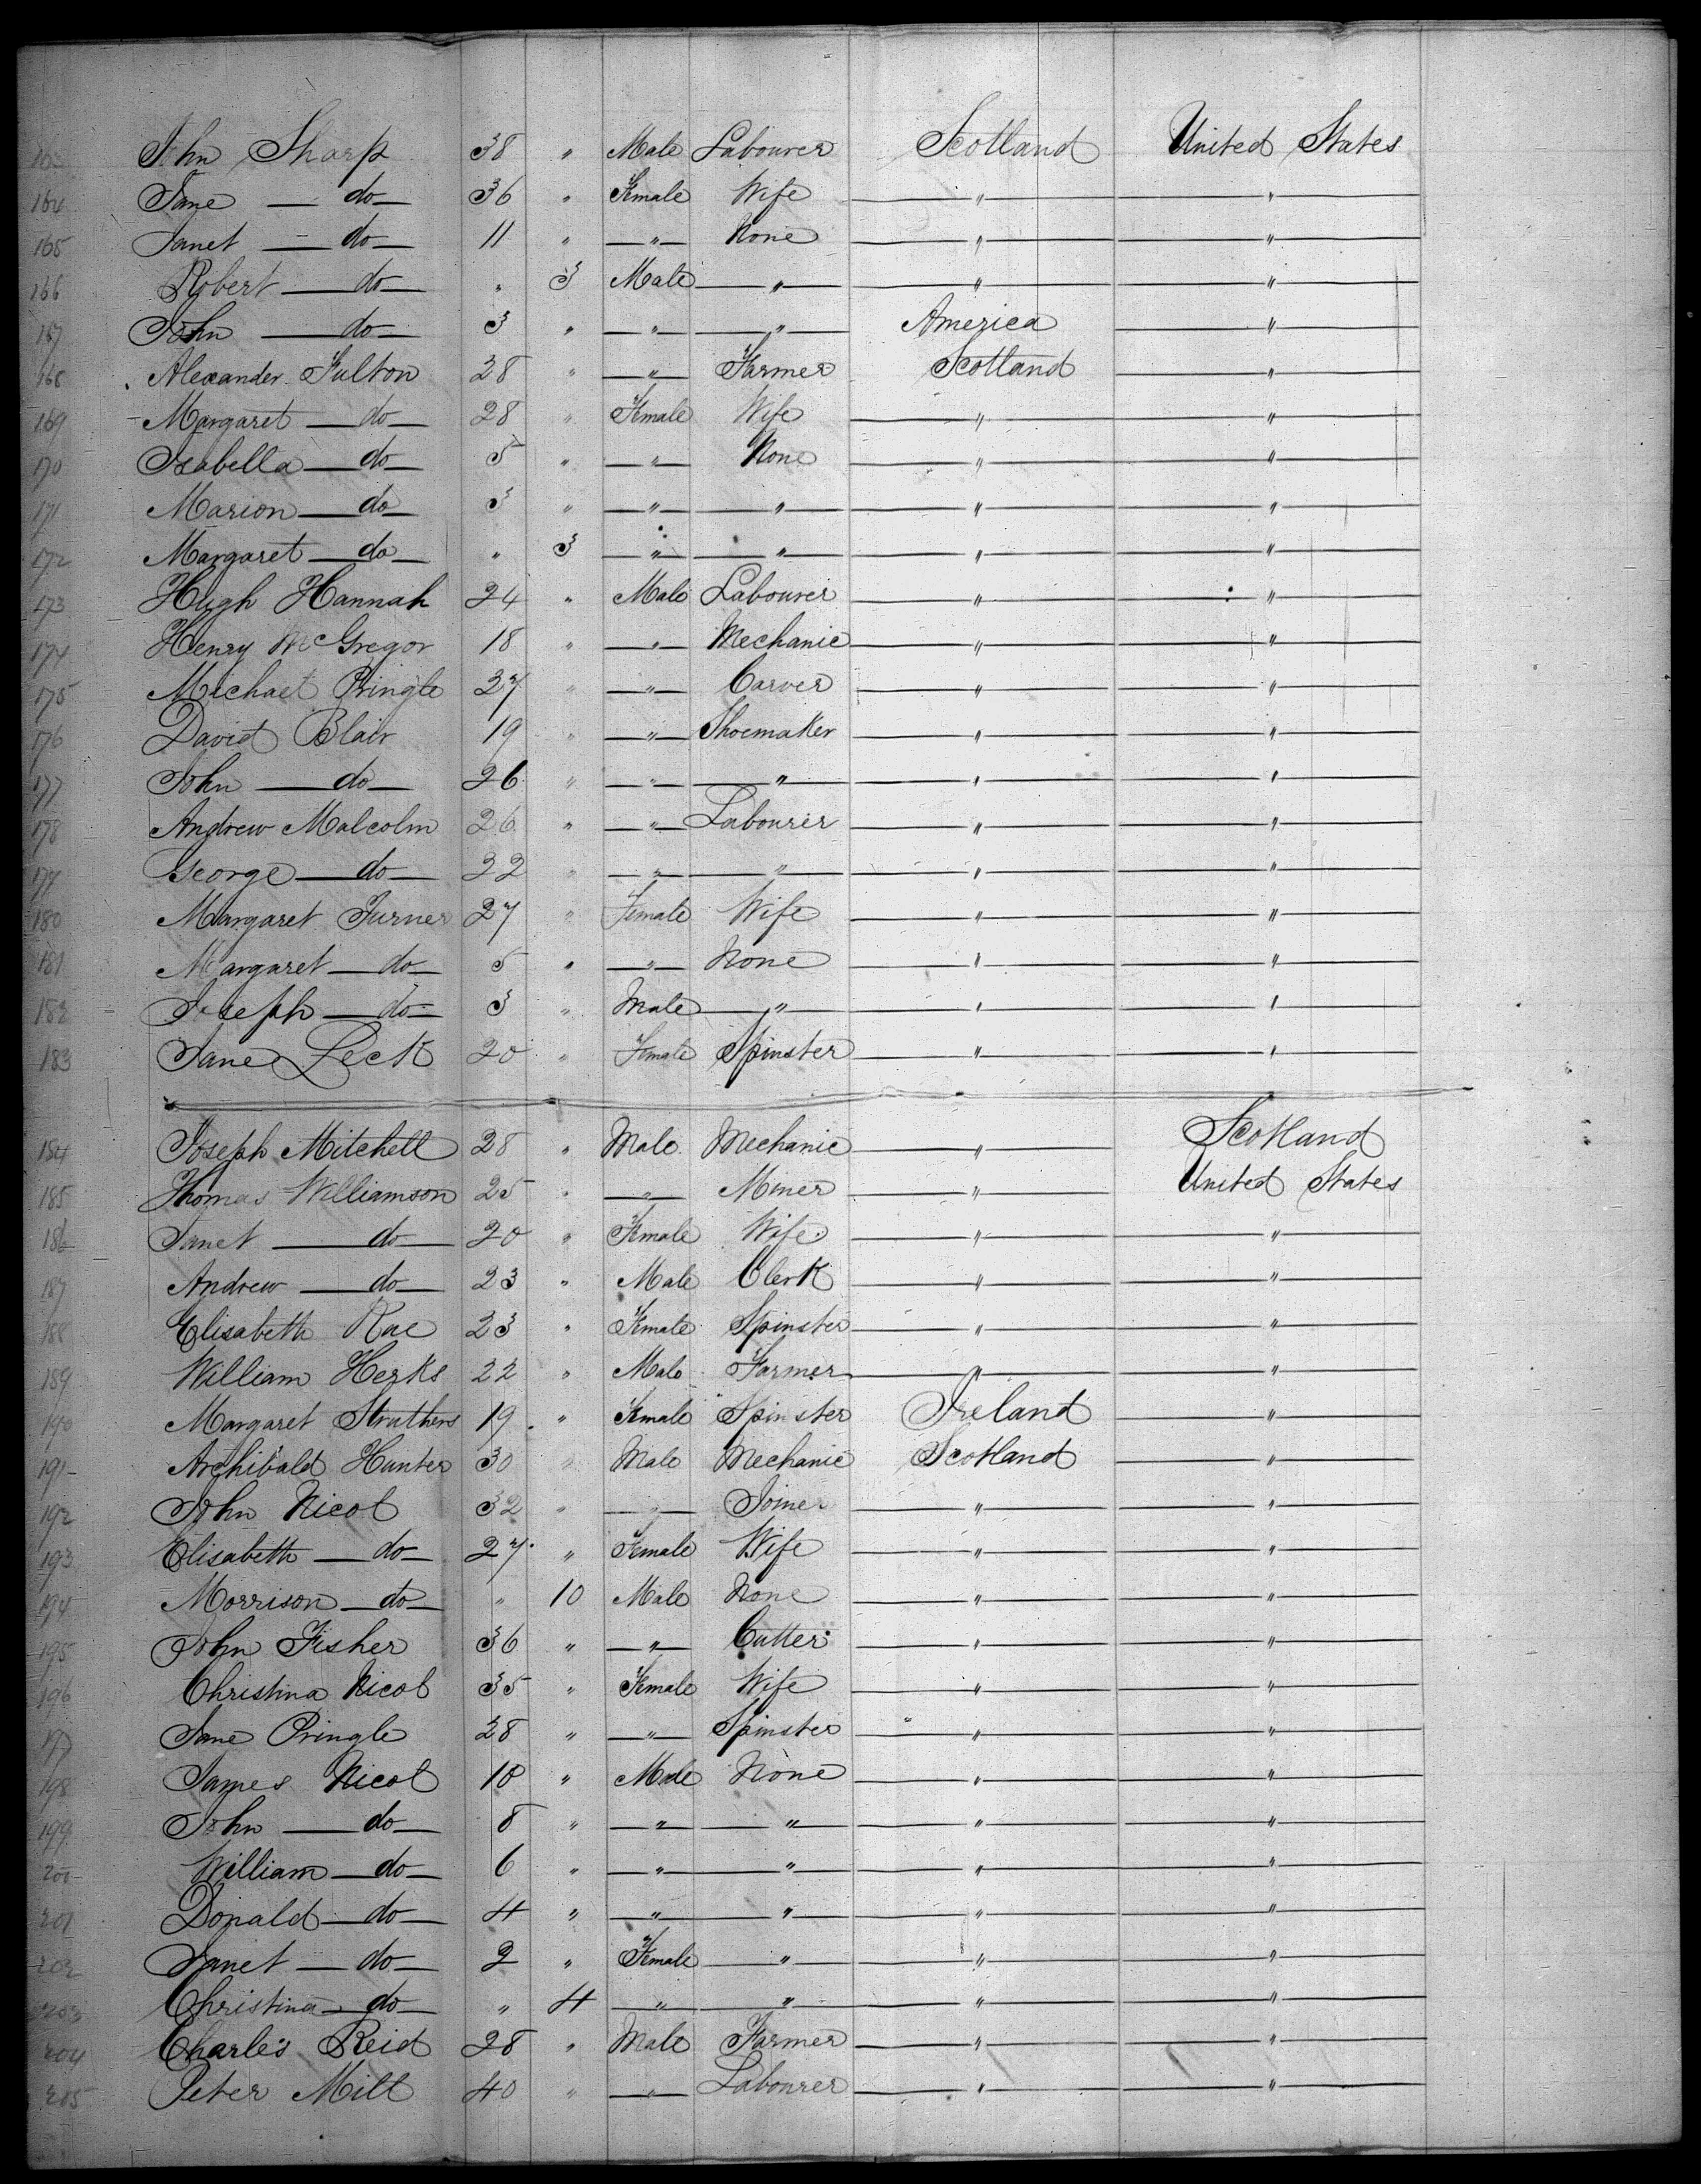 163 John Sharp 38 " Male Labourer Scotland United States
164 Jane — do — 36 " Female Wife " "
165 Janet — do — 11 " " None " "
166 Robert — do — " 3 Male " " "
167 John — do — 3 " " " America "
168 Alexander Fulton 28 " " Farmer Scotland "
169 Margaret — do — 28 " Female Wife " "
170 Isabella — do — 5 " " None " "
171 Marion — do — 3 " " " " "
172 Margaret — do — " 3 " " " "
173 Hugh Hannah 24 " Male Labourer " "
174 Henry McGregor 18 " " Mechanic " "
175 Michael Pringle 37 " " Carver " "
176 David Blair 19 " " Shoemaker " "
177 John — do — 26 " " " " "
178 Andrew Malcolm 26 " " Labourer " "
179 George — do — 22 " " " " "
180 Margaret Turner 27 " Female Wife " "
181 Margaret — do — 5 " " None " "
182 Joseph — do — 3 " Male " " "
183 Jane Leck 20 " Female Spinster " "
184 Joseph Mitchell 28 " Male Mechanic " Scotland
185 Thomas Williamson 25 " " Miner " United States
186 Janet — do — 20 " Female Wife " "
187 Andrew — do — 23 " Male Clerk " "
188 Elisabeth Rae 23 " Female Spinster " "
189 William Herks 22 " Male Farmer " "
190 Margaret Struthers 19 " Female Spinster Ireland "
191 Archibald Hunter 30 " Male Mechanic Scotland "
192 John Nicol 32 " " Joiner " "
193 Elisabeth — do — 27 " Female Wife " "
194 Morrison — do — " 10 Male None " "
195 John Fisher 36 " " Cutter " "
196 Christina Nicol 35 " Female Wife " "
197 Jane Pringle 28 " " Spinster " "
198 James Nicol 10 " Male None " "
199 John — do — 8 " " " " "
200 William — do — 6 " " " " "
201 Donald — do — 4 " " " " "
202 Janet — do — 2 " Female " " "
203 Christina — do — " 4 " " " "
204 Charles Reid 28 " Male Farmer " "
205 Peter Mill 40 " " Labourer " "